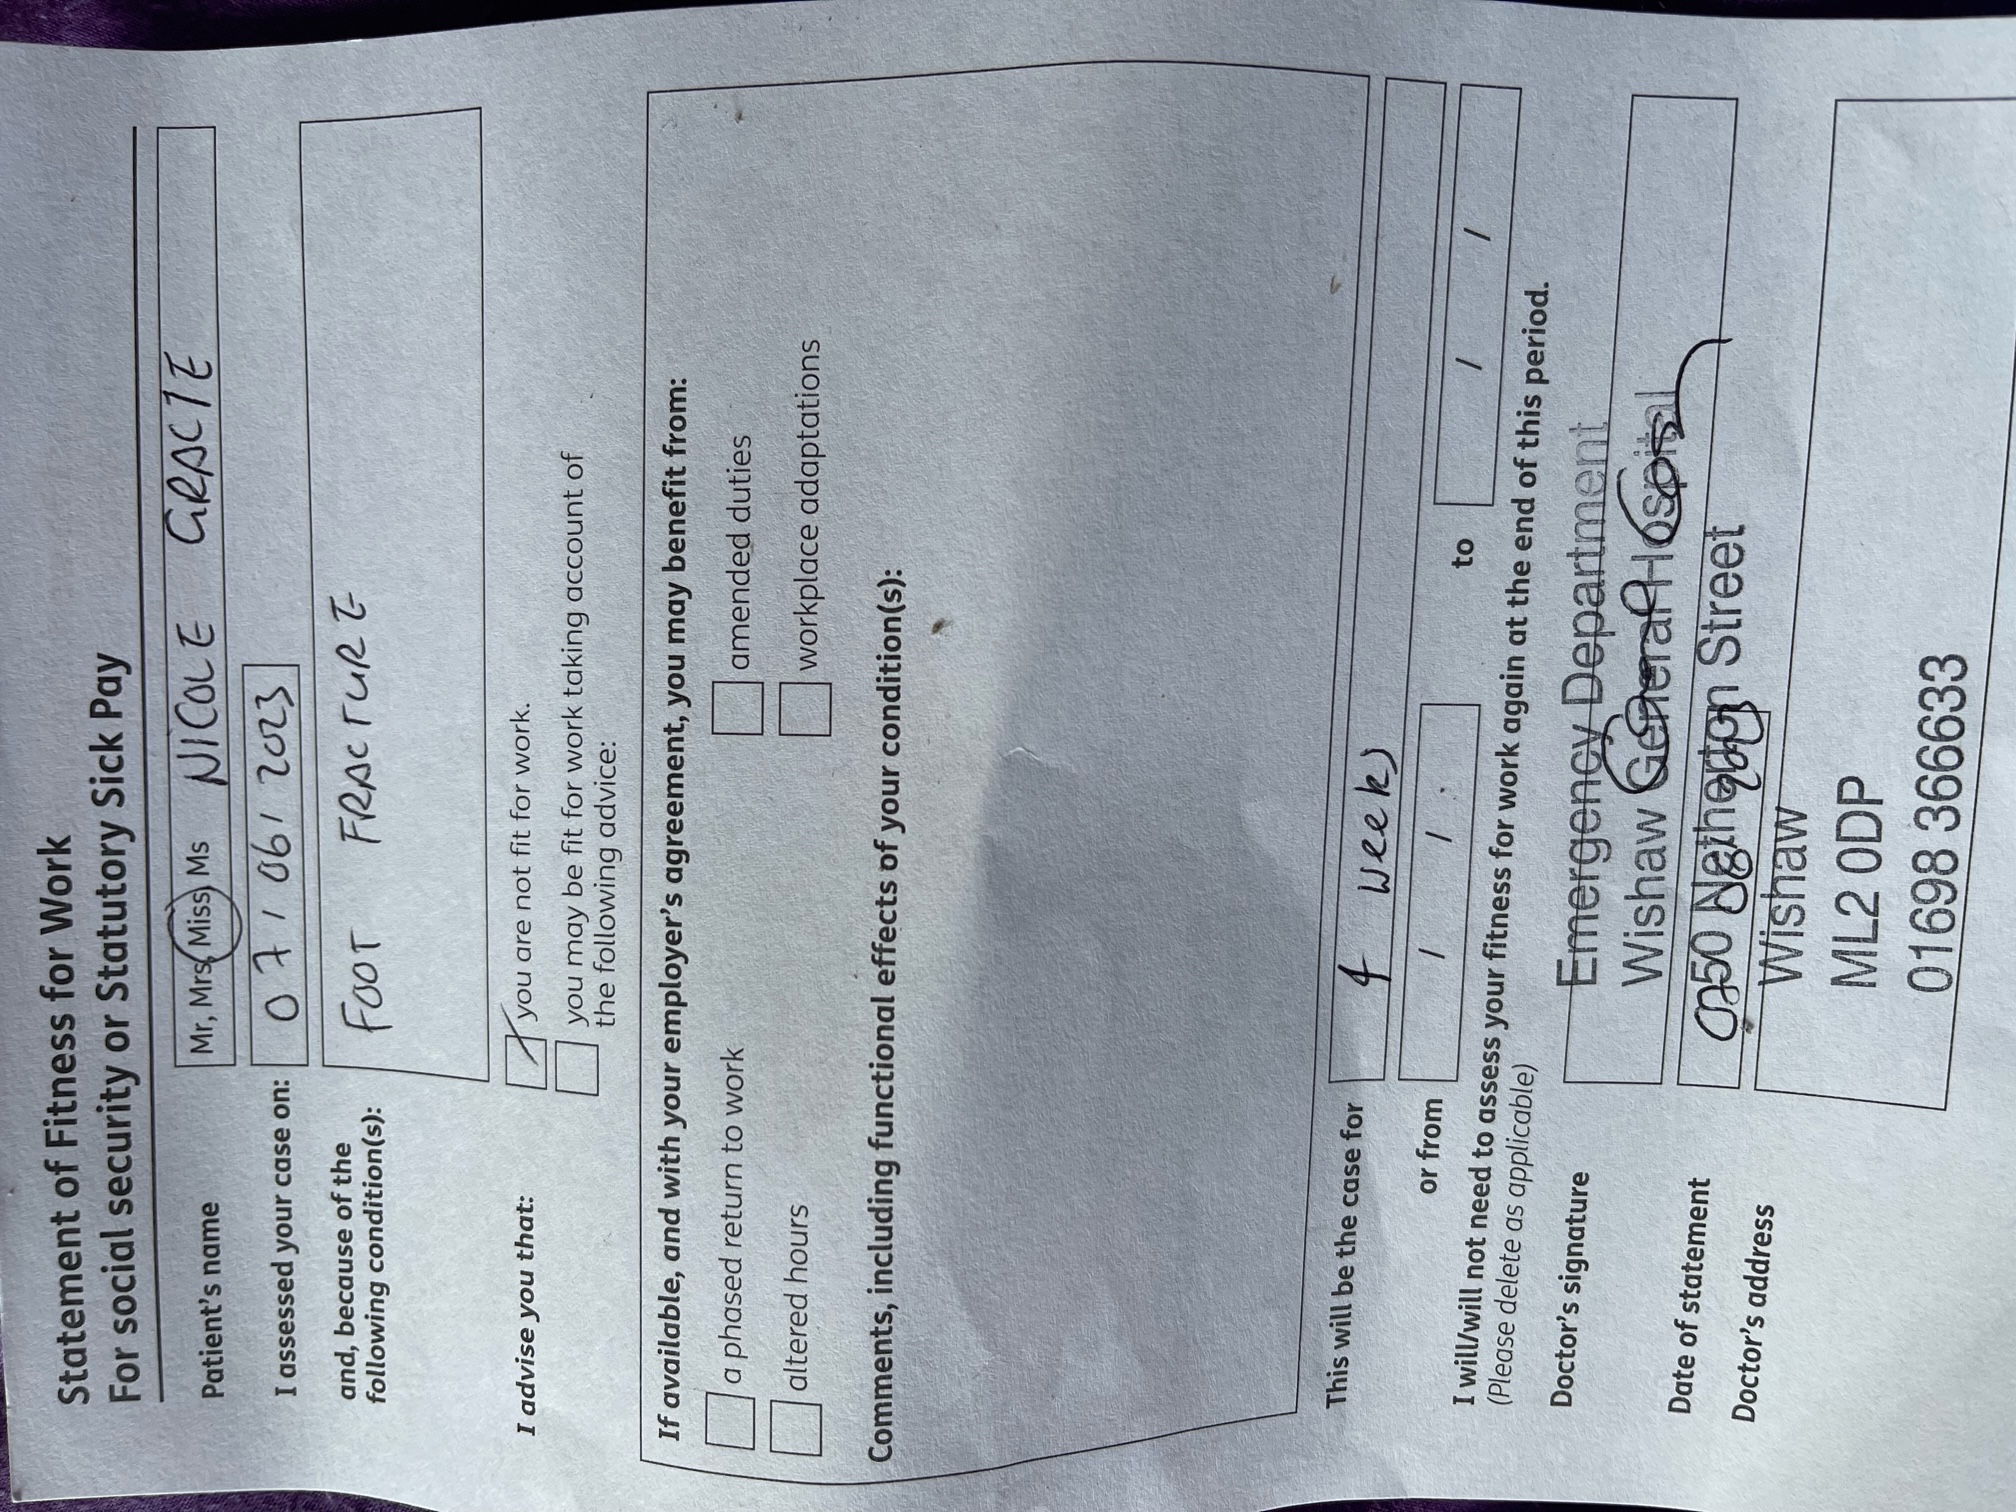 Statement of Fitness for Work
For social security or Statutory Sick Pay
Patient's name Mr, Mrs, Miss, Ms NICOLE GRACIE
I assessed your case on: 07/06/2023
and, because of the
following condition(s): FOOT FRACTURE
I advise you that: you are not fit for work.
you may be fit for work taking account of
the following advice:
If available, and with your employer's agreement, you may benefit from:
a phased return to work amended duties
altered hours workplace adaptations
Comments, including functional effects of your condition(s):
This will be the case for 4 weeks
or from / / to / /
I will/will not need to assess your fitness for work again at the end of this period.
(Please delete as applicable)
Doctor's signature Emergency Department
Wishaw General Hospital
Date of statement 07 06 2023
50 Netherton Street
Doctor's address
Wishaw
ML2 0DP
01698 366633